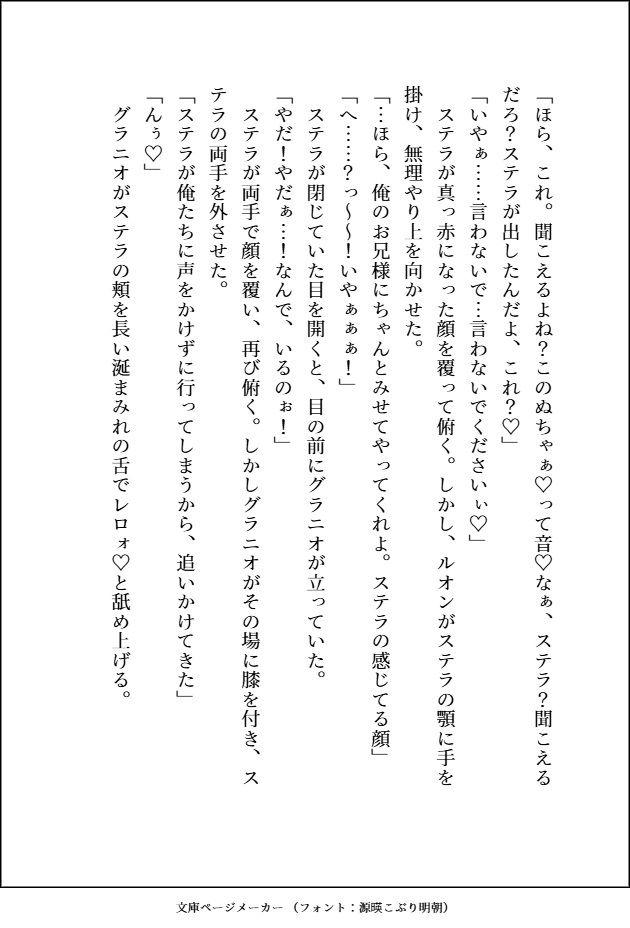 「ほら、これ。聞こえるよね？このぬちゃぁ♡って音♡なぁ、ステラ？聞こえる
だろ？ステラが出したんだよ、これ？♡」
「いやぁ……言わないで…言わないでくださいぃ♡」
　ステラが真っ赤になった顔を覆って俯く。しかし、ルオンがステラの顎に手を
掛け、無理やり上を向かせた。
「…ほら、俺のお兄様にちゃんとみせてやってくれよ。ステラの感じてる顔」
「へ……？っ～～！いやぁぁぁ！」
　ステラが閉じていた目を開くと、目の前にグラニオが立っていた。
「やだ！やだぁ…！なんで、いるのぉ！」
　ステラが両手で顔を覆い、再び俯く。しかしグラニオがその場に膝を付き、ス
テラの両手を外させた。
「ステラが俺たちに声をかけずに行ってしまうから、追いかけてきた」
「んぅ♡」
　グラニオがステラの頬を長い涎まみれの舌でレロォ♡と舐め上げる。
文庫ページメーカー（フォント：源暎こぶり明朝）